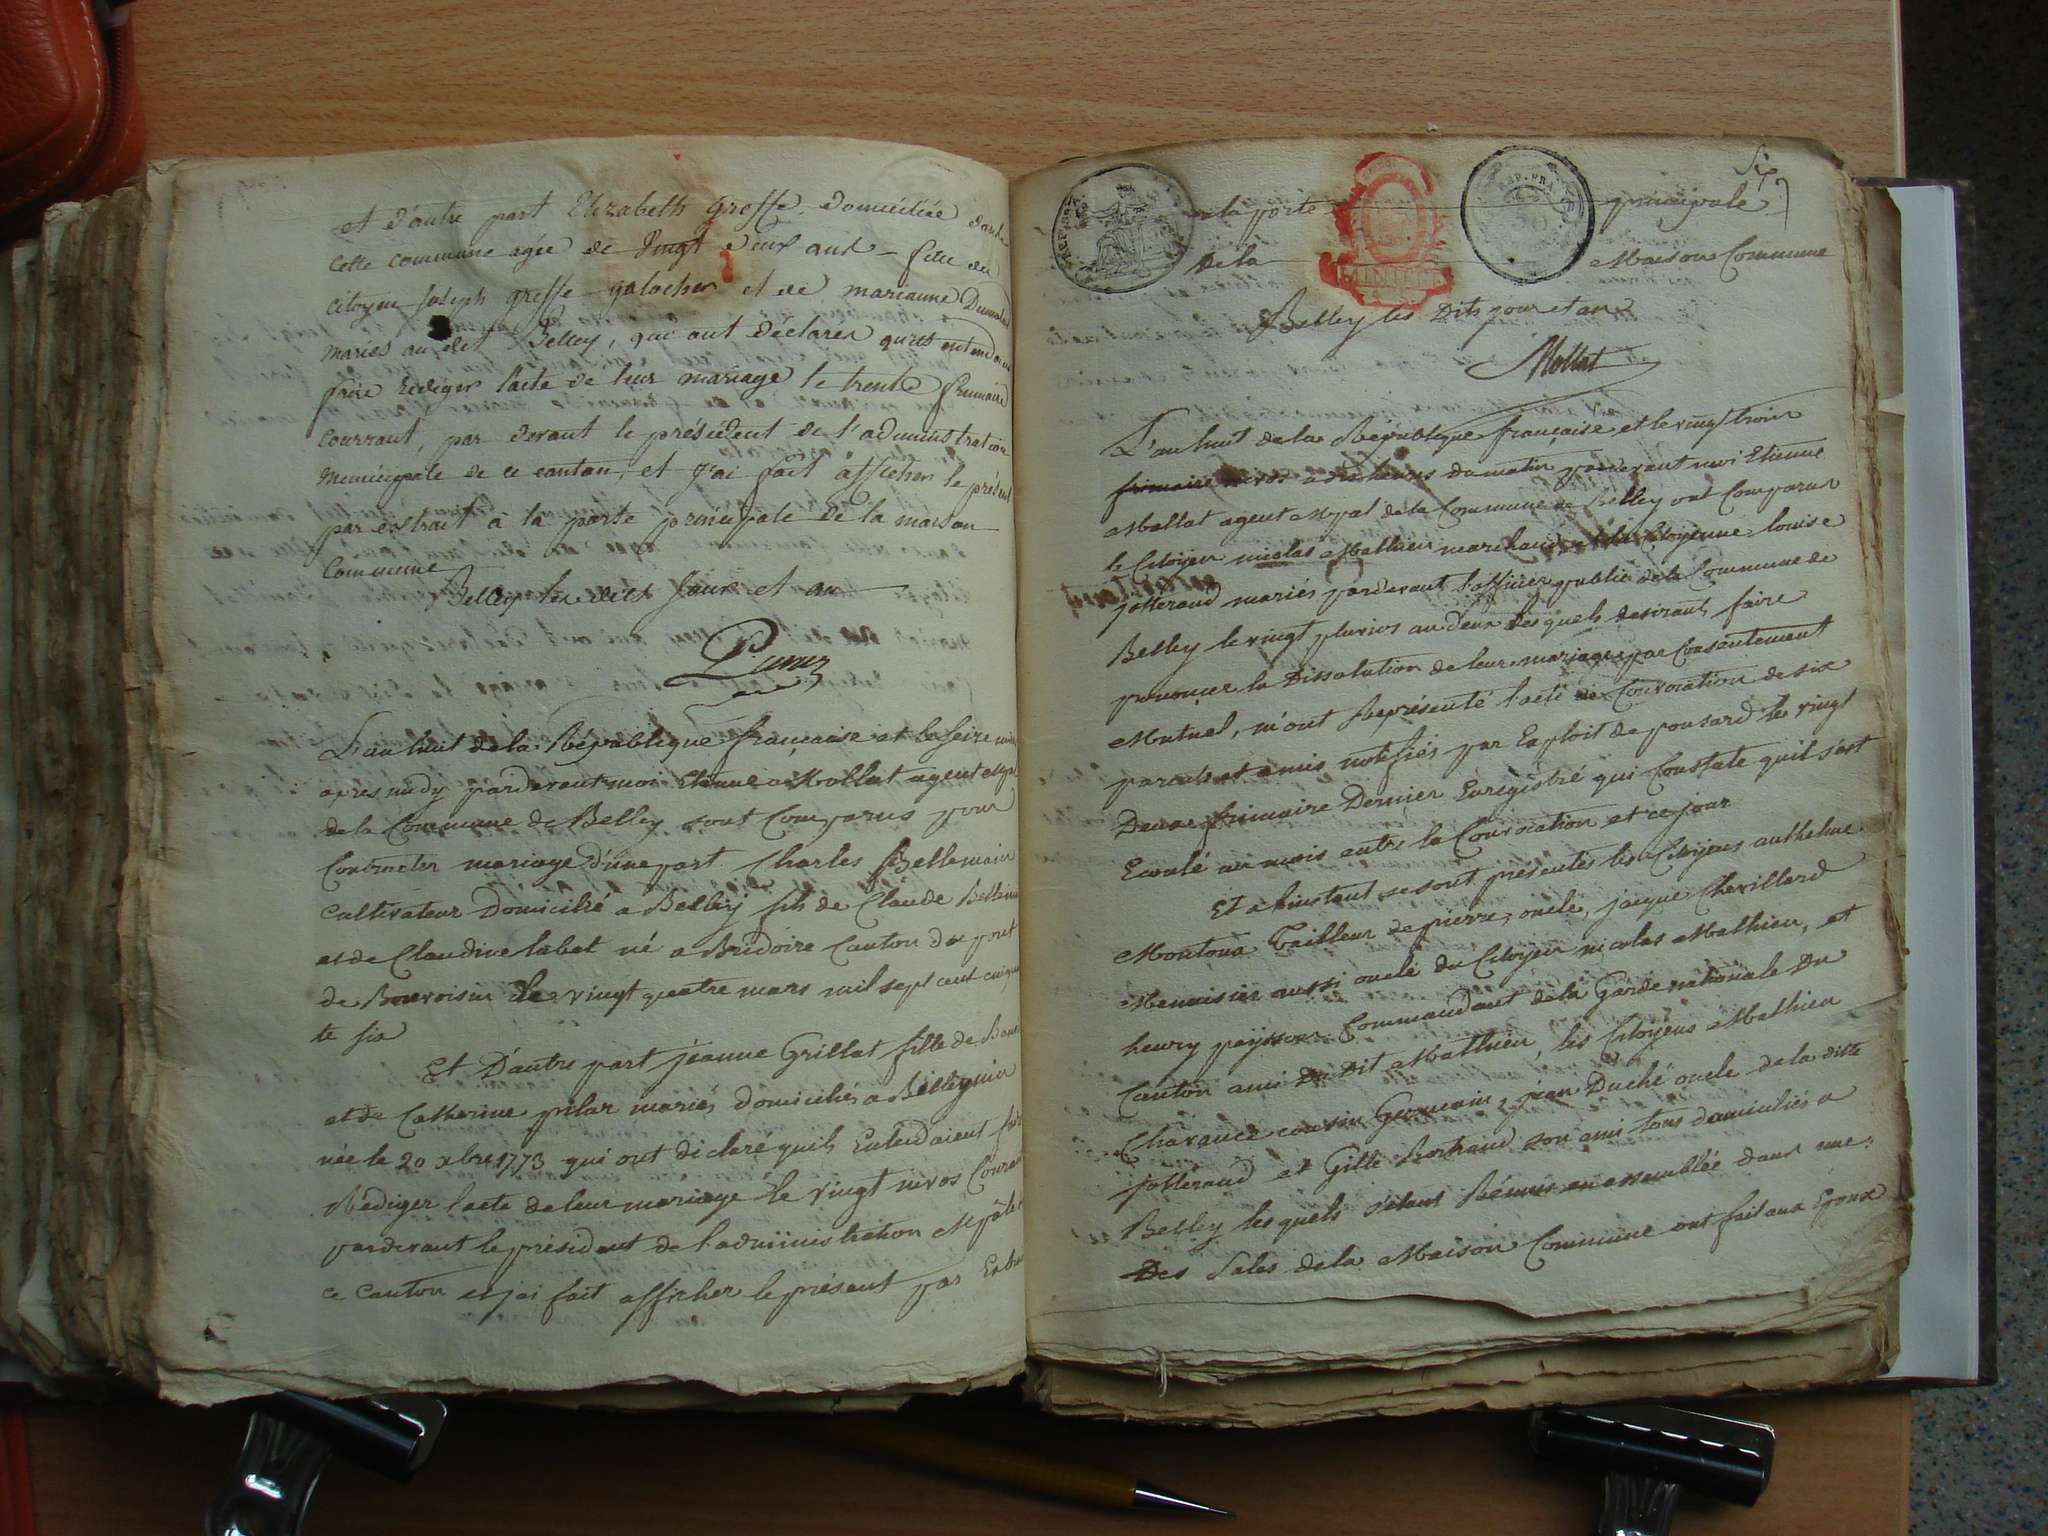 et d'autre part Elizabeth Greffe domiciliée dans
cette commune agée de vingt deux ans – fille du
citoyen Joseph Greffe galocher et de marianne
mariés au dit Belley, qui ont déclarer qu'ils entendoient
faire rediger l'acte de leur mariage le trente frimaire
courrant, par devant le président de l'administration
municipale de ce canton, et j'ai fait afficher le présent
par extrait à la porte principale de la maison
commune
Belley les dits Jour et an
L'an huit de la Republique française et le seize nivos
apres midy pardevant moi Etienne Mollat agent Mpal
de la Commune de Belley sont Comparus pour
Contracter mariage d'une part Charles Bellemain
Cultivateur Domicilié a Belley fils de Claude Bellemain
et de Claudine labat né a Bridoire Canton du pont
de Bonvoisin le vingt quatre mars mil sept cent cinquan
te six
Et D'autre part jeanne Grillat fille de
et de Catherine pilar mariés domiciliés a Belley
née le 20 xbre 1773 qui ont declaré quils Entendoient faire
Rédiger l'acte de leur mariage le vingt nivos Courant
pardevant le président de l'administration Mpâle
ce Canton et jai fait afficher le présent par Extrait
Six
a la porte principale
de la Maison Commune
REP. FRA.
Belley les Dits jour et an
Mollat
L'an huit de la République française et le vingt trois
frimaire nivos a dix heures du matin pardevant moi Etienne
Mollat agent Mpal de la Commune de Belley ont Comparus
le Citoyen nicolas Mathieu marchand et la Citoyenne louise
jotteraud mariés pardevant l'officier public de la Commune de
Belley le vingt pluvios an deux lesquels desirant faire
prononcer la Dissolution de leur mariage par Consentement
Mutuel, m'ont Représenté l'acte de Convocation de six
parents et amis notifiés par Exploit de ponsard le vingt
Deux frimaire Dernier Enregistré qui Constate quil s'est
Ecoulé un mois entre la Convocation et ce jour
Et a l'instant se sont présentés les Citoyens anthelme
Montoux Tailleur de pierre, oncle, jacque Chevillard
Menuisier aussi oncle du Citoyen nicolas Mathieu, et
henry peysson Commandant de la Garde nationale Du
Canton ami Du Dit Mathieu, les Citoyens Mathieu
Charance cousin Germain, jean Duché oncle de la ditte
jotteraud et Gille Bertrand son ami tous domiciliés a
Belley lesquels s'étant Réunis en assemblée dans une
Des Sales de la Maison Commune ont fait aux Epoux